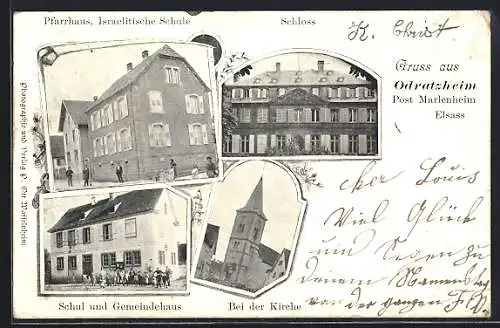 Pfarrhaus, Israelitische Schule
Schloss
K. Christ
Gruss aus
Odratzheim
Post Marlenheim
Elsass
cher Louis
Viel Glück
und Segen zu
deinem Namenstag
von der ganzen
Schul und Gemeindehaus
Bei der Kirche
Photographie und Verlag